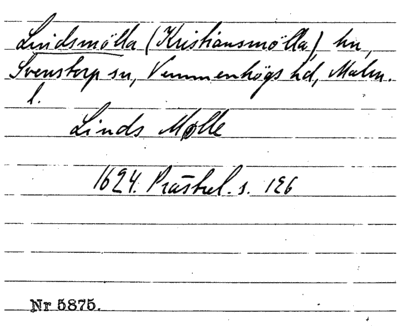 Lindsmölla (Kristiansmölla) hu,
Svenstorp sn, Vemmenhögs hd, Malm.
l.
Linds Mølle
1624. Prästrel. s. 126
Nr 5875.